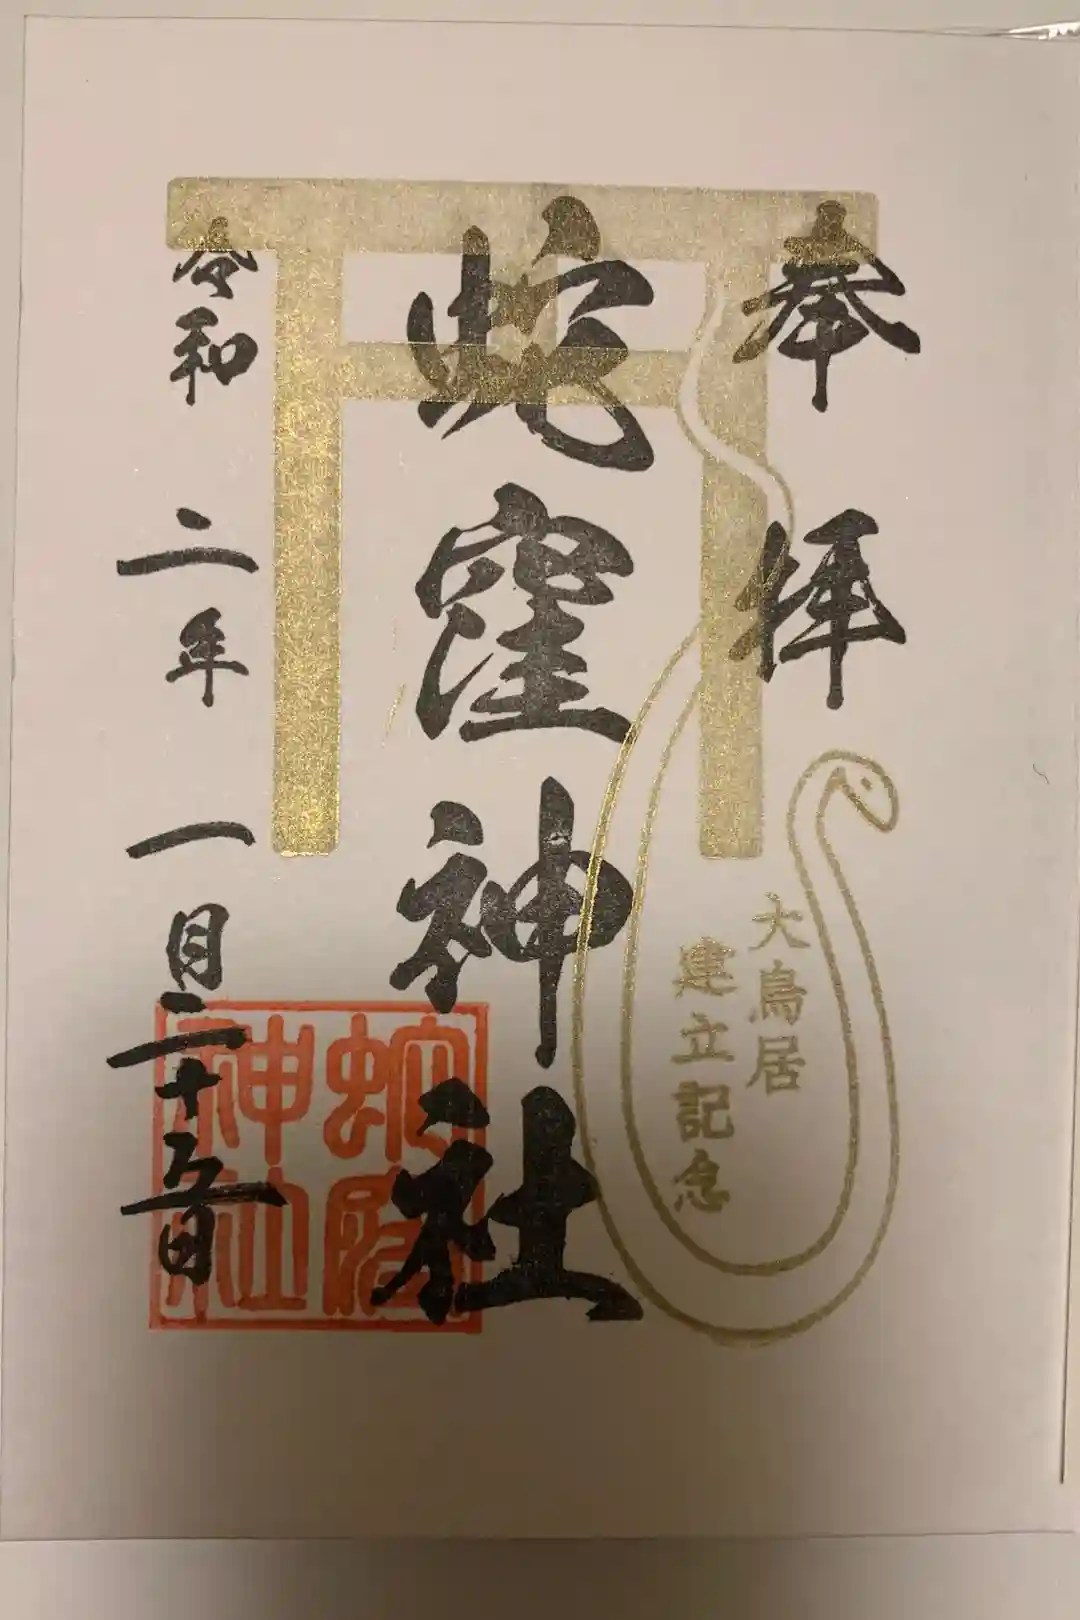 奉拝
大鳥居
建立記念
蛇窪神社
蛇窪
神社
令和二年一月二十五日